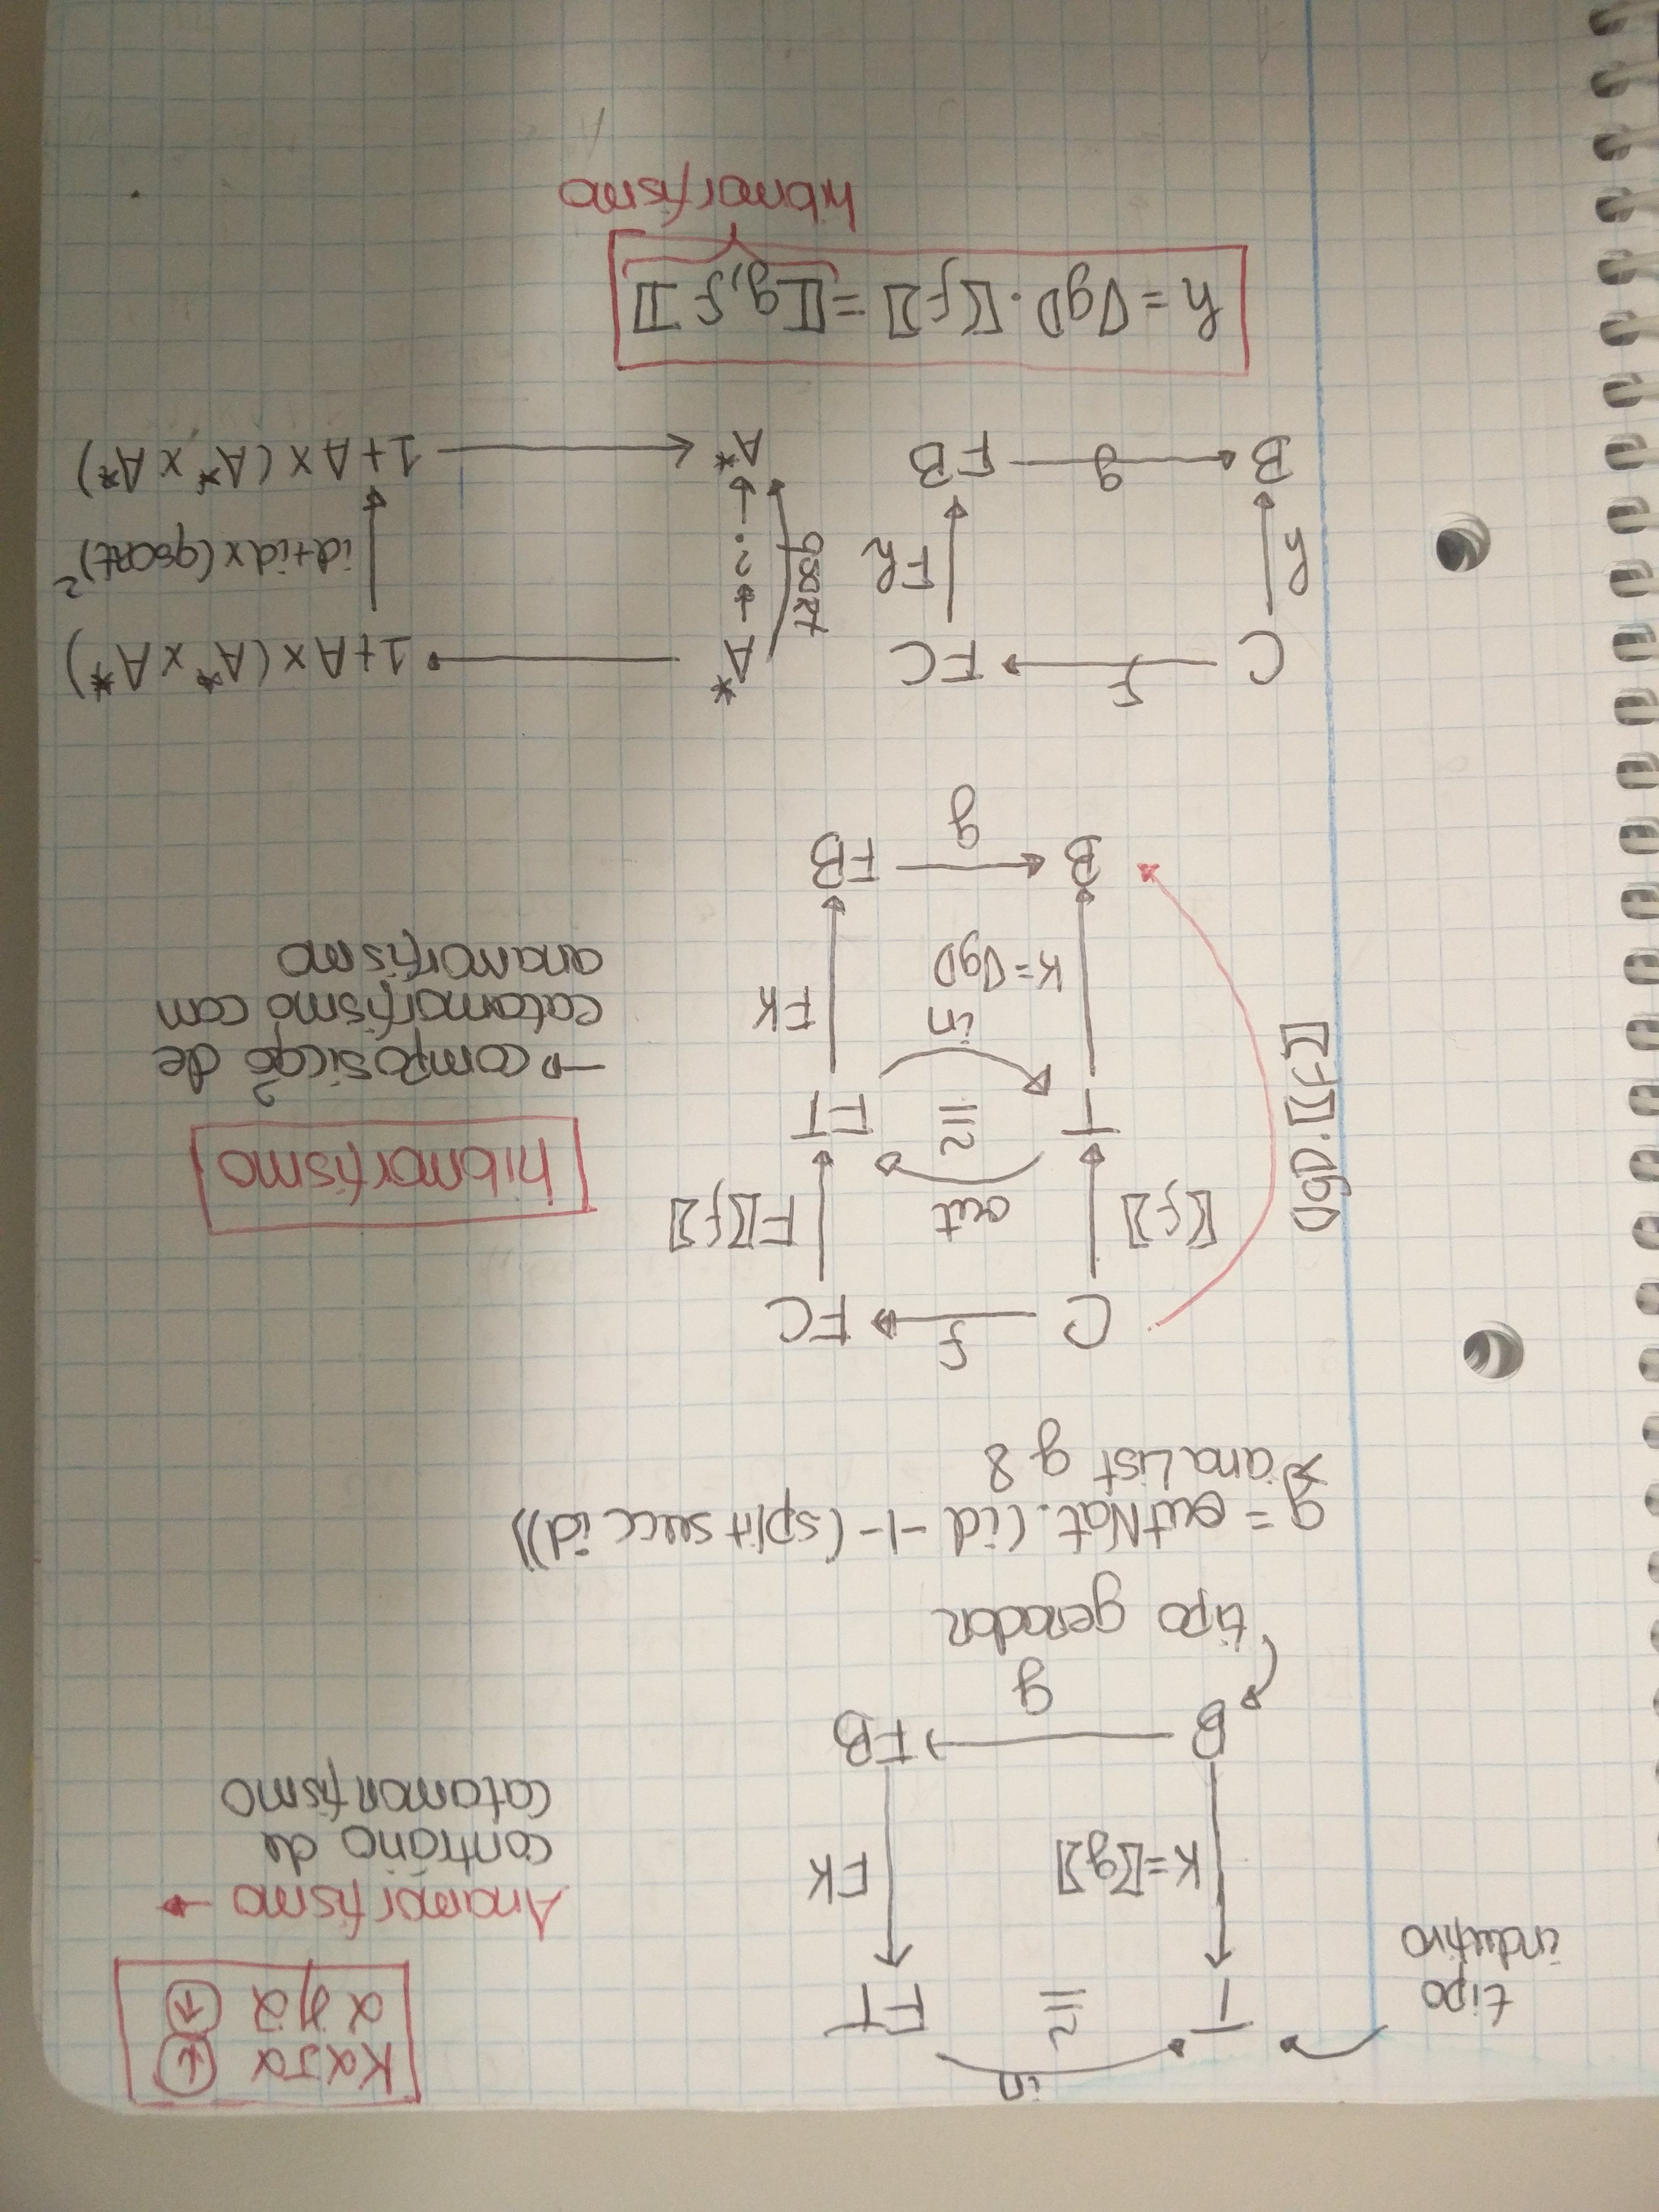 in
T ≅ FT
tipo
indutivo
K=〖g〗
FK
B
FB
g
tipo gerador
KαJα ↓
αγα ↑
Anamorfismo →
contrário de
catamorfismo
g = outNat.(id -|- (split succ id))
> anaList g 8
C f FC
〖f〗
F〖f〗
out
T ≅ FT
in
⦇g⦈.〖f〗
K=⦇g⦈
FK
B FB
g
hilomorfismo
→ composição de
catamorfismo com
anamorfismo
C f FC
h
Fh
B g FB
A* 1+A×(A*×A*)
qsort
?
id+id×(qsort)²
A* 1+A×(A*×A*)
h = ⦇g⦈.〖f〗 = ⟦g,f⟧
hilomorfismo